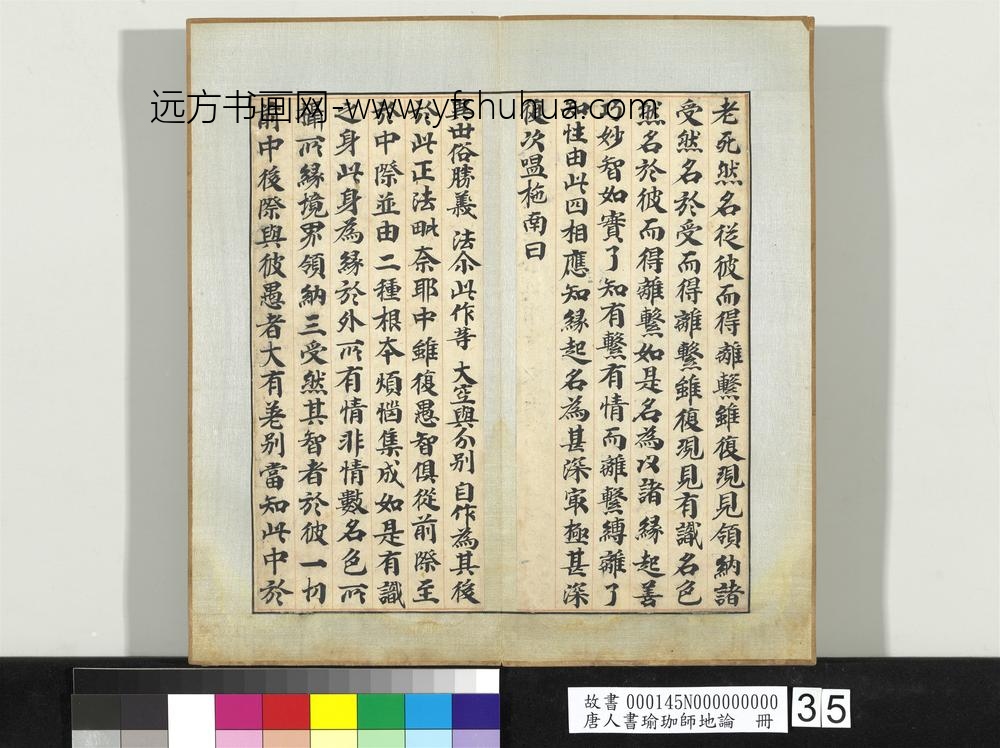 远方书画网-www.yfshuhua.com
老死然名從彼而得離繫雖復現見領納諸
受然名於受而得離繫雖復現見有識名色
然名於彼而得離繫如是名為以諸緣起善
巧妙智如實了知有繫有情而離繫縛離了
性由此四相應知緣起名為甚深冣極甚深
復次嗢柂南曰
異世俗勝義 法尒此作等 大空與分別 自作為其後
於此正法毗奈耶中雖復愚智俱從前際至
於中際並由二種根本煩惱集成如是有識
之身此身為緣於外所有情非情數名色所
攝所緣境界領納三受然其智者於彼一切
前中後際與彼愚者大有差別當知此中於
故書 000145N000000000
唐人書瑜珈師地論 冊
35